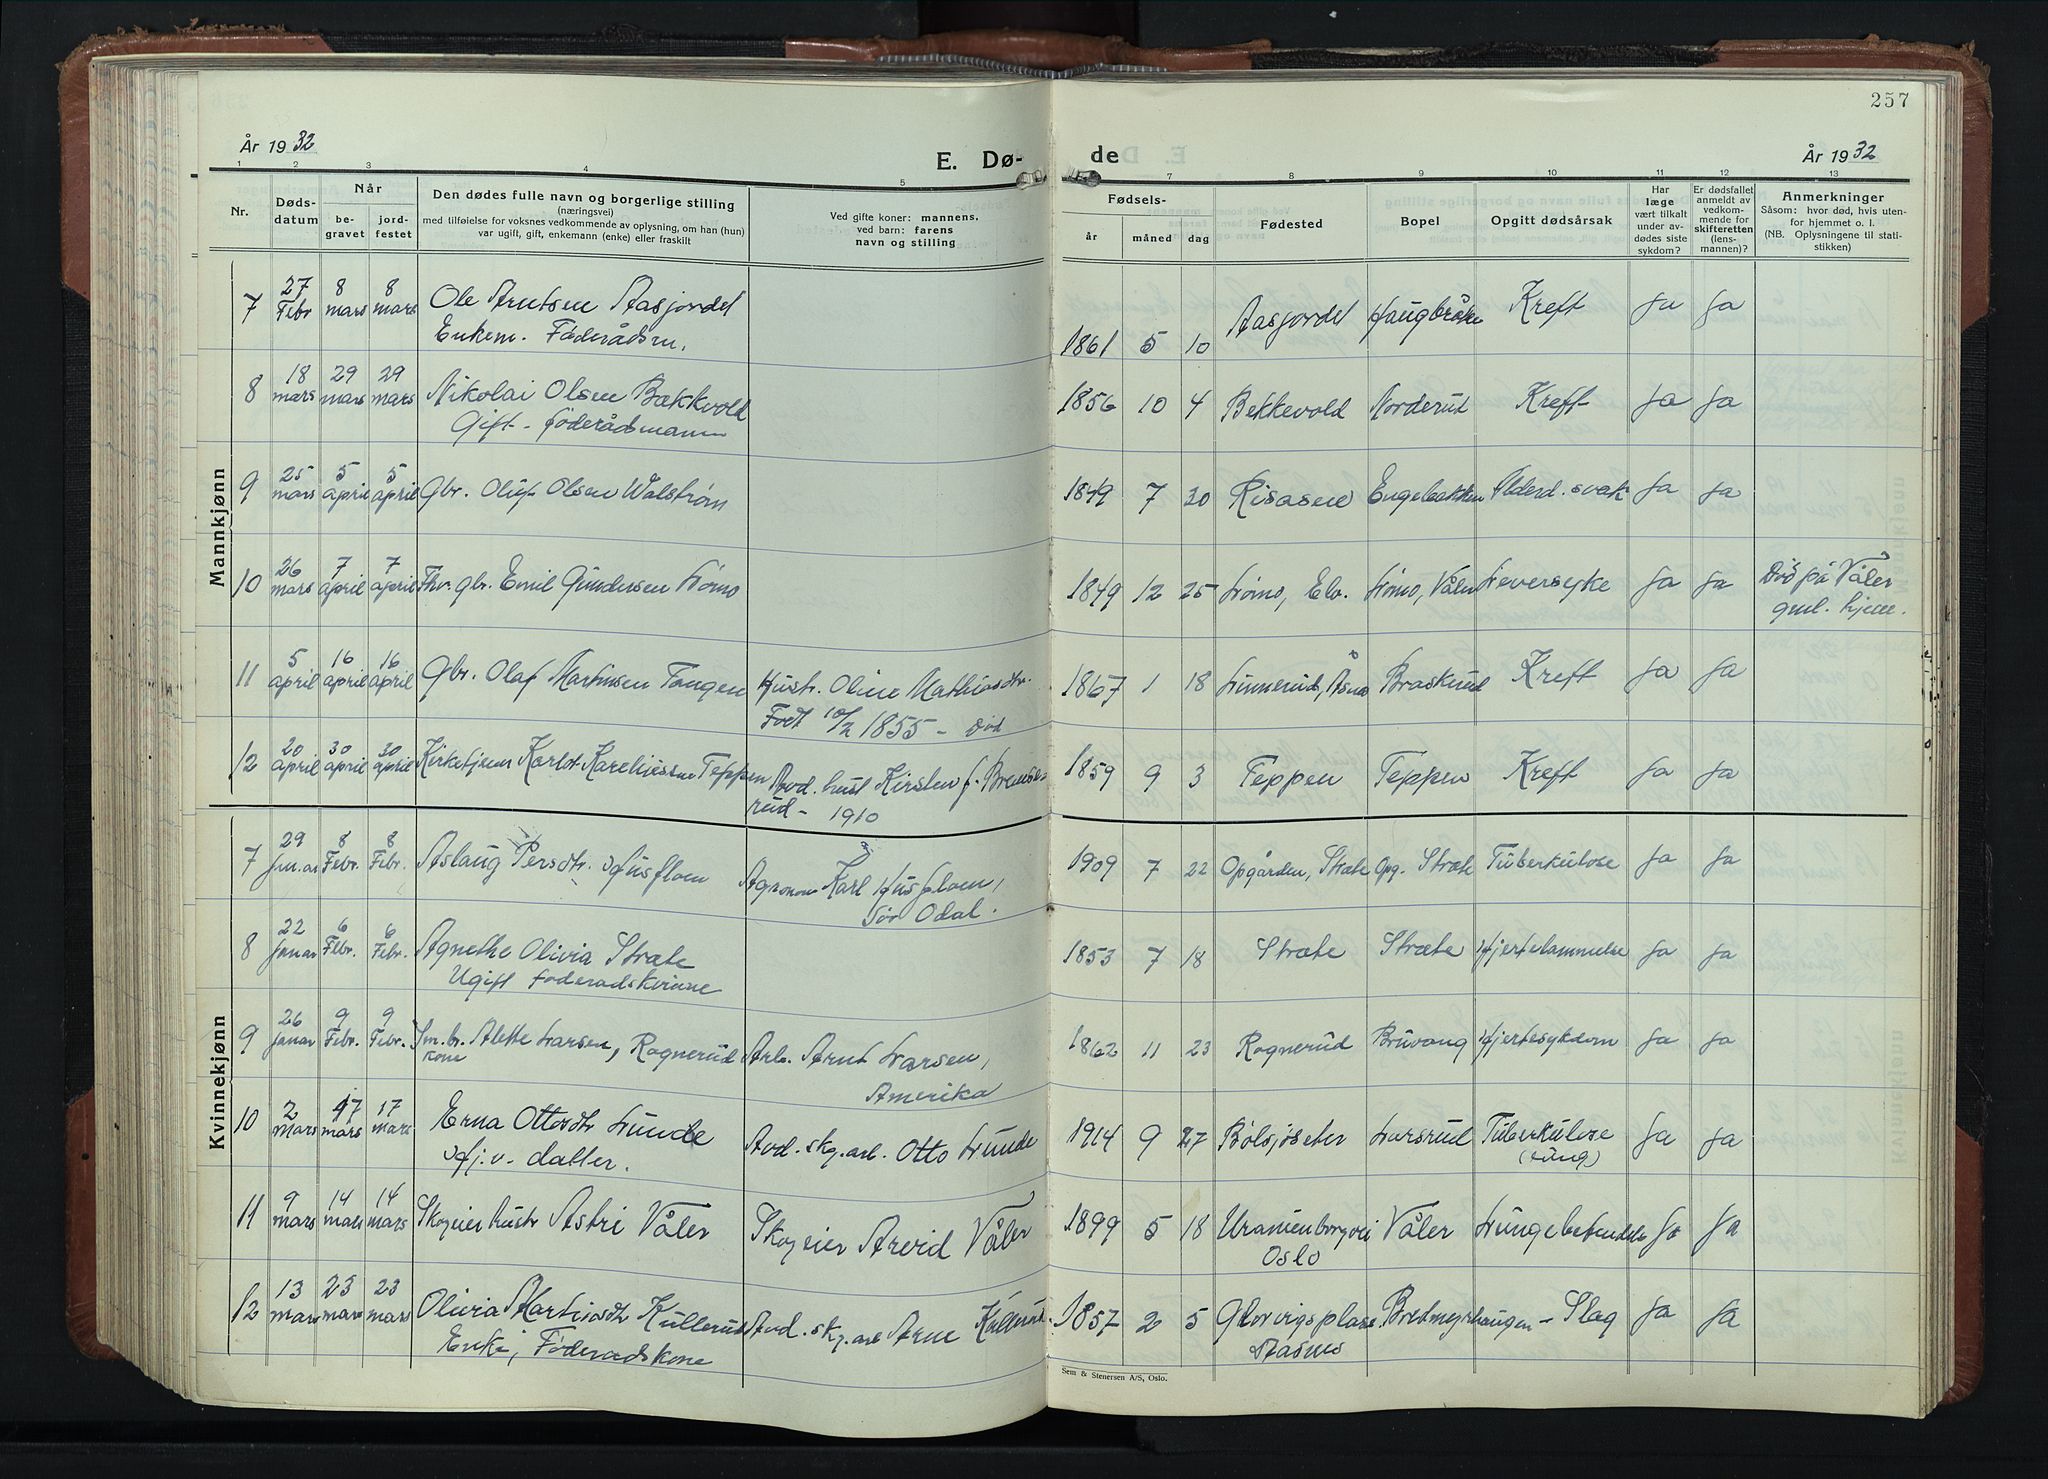 257
År 1932
E. Dø-
de
År 1932
1 2 3 4 5
7 8 9 10 11 12 13
Nr.
Døds-
datum
Når
be-
gravet
jord-
festet
Den dødes fulle navn og borgerlige stilling
(næringsvei)
med tilføielse for voksnes vedkommende av oplysning, om han (hun)
var ugift, gift, enkemann (enke) eller fraskilt
Ved gifte koner: mannens,
ved barn: farens
navn og stilling
Fødsels-
år måned dag
Fødested
Bopel
Opgitt dødsårsak
Har
læge
vært tilkalt
under av-
dødes siste
sykdom?
Er dødsfallet
anmeldt av
vedkom-
mende for
skifteretten
(lens-
mannen)?
Anmerkninger
Såsom: hvor død, hvis uten-
for hjemmet o. l.
(NB. Oplysningene til stati-
stikken)
Mannkjønn
7 27 Febr 8 mars 8 mars Ole Arntsen Aasjordet
Enkem. Føderådsm.
1861 5 10 Aasjordet Haugbråten Kreft Ja Ja
8 18 mars 29 mars 29 mars Nikolai Olsen Bækkvold
Gift - føderådsmann
1856 10 4 Bekkevold Norderud Kreft Ja Ja
9 25 mars 5 april 5 april Gbr. Oluf Olsen Walstrøm
1849 7 30 Risasen Engebakken Alderd. svak Ja Ja
10 26 mars 7 april 7 april Fhv. gbr. Emil Gundersen Lømo
1849 12 25 Lømo, Elv. Lømo, Våler Leversyke Ja Ja Død på Våler
gml. hjem.
11 5 april 16 april 16 april Gbr. Olaf Martinsen Tangen Hustr. Oline Mathiasdtr.
Født 10/2 1855 - død
1867 1 18 Linnerud, Åsnes Braskerud Kreft Ja Ja
12 20 april 30 april 30 april Kirketjener Karldt Kareliussen Teppen Avd. hust Kirsten f. Brenne-
rud - 1910
1859 9 3 Teppen Teppen Kreft Ja Ja
Kvinnekjønn
7 29 Januar 8 Febr. 8 Febr. Aslaug Persdtr. Husfloen Agronom Karl Husfloen,
Sør Odal.
1909 7 22 Opgården, Stræte Opg. Stræte Tuberkulose Ja Ja
8 22 Januar 6 Febr. 6 Febr. Agnethe Olivia Stræte
Ugift føderadskvinne
1853 7 18 Stræte Stræte Hjertelammelse Ja Ja
9 26 Januar 9 Febr. 9 Febr. Sm.br. kone Alette Larsen, Rognerud Arb. Arnt Larsen,
Amerika
1862 11 23 Rognerud Bruvang Hjertesykdom Ja Ja
10 2 Mars 17 mars 17 mars Erna Ottosdtr Lunde
Hj.v. datter.
Avd. skg.arb. Otto Lunde
1914 9 27 Bølsjøseter Larsrud Tuberkulose
(lung) Ja Ja
11 9 mars 14 mars 14 mars Skogeier hustr Astri Våler Skogeier Arvid Våler
1899 5 18 Uranienborgvei
Oslo Våler Lungebetendelse Ja Ja
12 13 mars 23 mars 23 mars Olivia Martinsdtr Kullerud
Enke, Føderadskone
Avd. skg. arb Arne Kullerud.
1857 2 5 Glorvigsplass
Aasnes Bredmyrhaugen Slag Ja Ja
Sem & Stenersen A/S, Oslo.